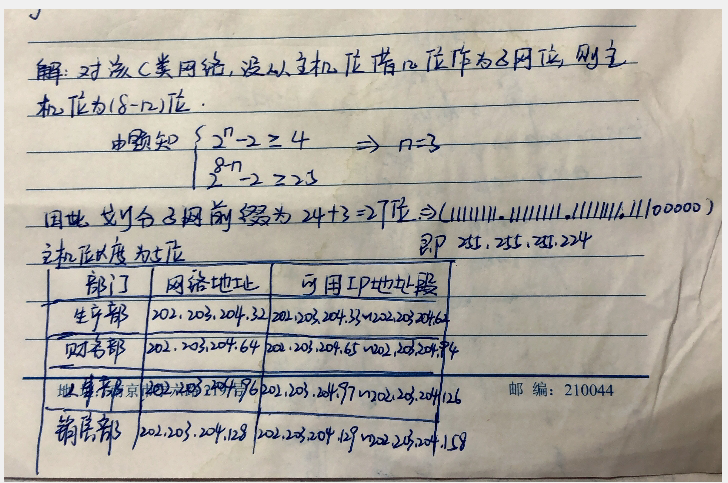 解: 对该C类网络,设从主机位借n位作为子网位,则主
机位为(8-n)位.
由题知 { 2^n-2≥4 ⇒ n=3
2^8-n-2≥25
因此 划分子网前缀为24+3=27位⇒(11111111.11111111.11111111.11100000)
主机位长度为5位 即 255.255.255.224
部门 网络地址 可用IP地址段
生产部 202.203.204.32 202.203.204.33~202.203.204.62
财务部 202.203.204.64 202.203.204.65~202.203.204.94
202.203.204.96 202.203.204.97~202.203.204.126
邮 编: 210044
销售部 202.203.204.128 202.203.204.129~202.203.204.158